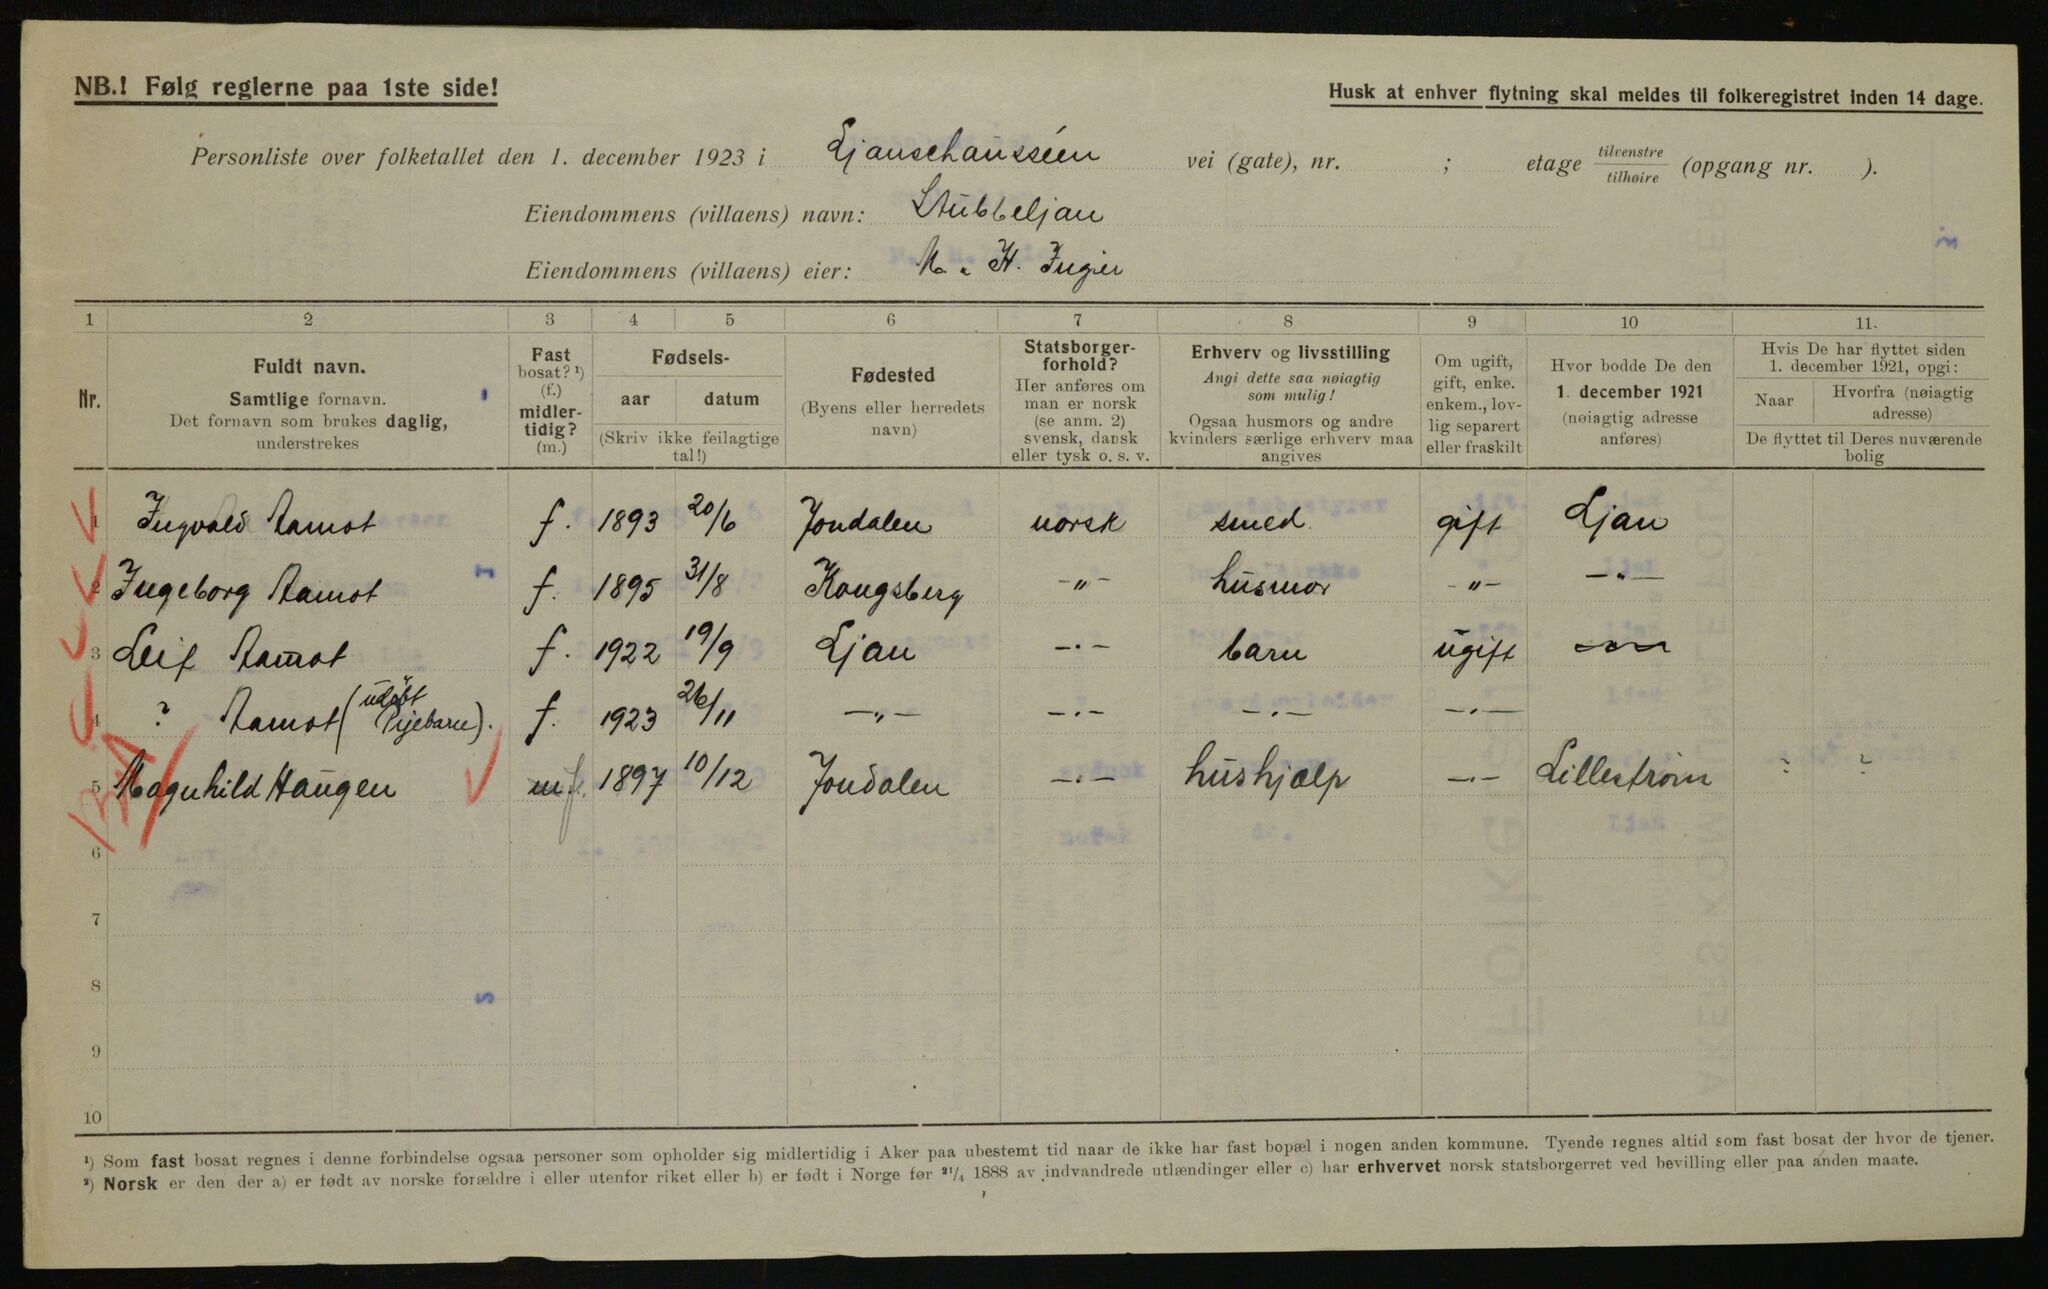 NB.! Følg reglerne paa 1ste side!
Husk at enhver flytning skal meldes til folkeregistret inden 14 dage.
Personliste over folketallet den 1. december 1923 i Ljanschausséen vei (gate), nr. ; etage tilvenstre / tilhøire (opgang nr. ).
Eiendommens (villaens) navn: Stubbeljan
Eiendommens (villaens) eier: M. . H. Ingier
1 2 3 4 5 6 7 8 9 10 11.
Nr.
Fuldt navn.
Samtlige fornavn.
Det fornavn som brukes daglig,
understrekes
Fast
bosat? ¹)
(f.)
midler-
tidig?
(m.)
Fødsels-
aar datum
(Skriv ikke feilagtige
tal!)
Fødested
(Byens eller herredets
navn)
Statsborger-
forhold?
Her anføres om
man er norsk
(se anm. 2)
svensk, dansk
eller tysk o. s. v.
Erhverv og livsstilling
Angi dette saa nøiagtig
som mulig!
Ogsaa husmors og andre
kvinders særlige erhverv maa
angives
Om ugift,
gift, enke.
enkem., lov-
lig separert
eller fraskilt
Hvor bodde De den
1. december 1921
(nøiagtig adresse
anføres)
Hvis De har flyttet siden
1. december 1921, opgi:
Naar
Hvorfra (nøiagtig
adresse)
De flyttet til Deres nuværende
bolig
1 Ingvald Aamot f. 1893 20/6 Jondalen norsk smed. gift Ljan
2 Ingeborg Aamot f. 1895 31/8 Kongsberg -"- husmor -"- -"-
3 Leif Aamot f. 1922 19/9 Ljan -"- barn ugift
4 ? Aamot (udøbt Pijebarn). f. 1923 26/11 -"- -"- -"- -"-
5 Magnhild Haugen m f. 1897 10/12 Jondalen -"- hushjælp -"- Lillestrøm ? ?
6
7
8
9
10
¹) Som fast bosat regnes i denne forbindelse ogsaa personer som opholder sig midlertidig i Aker paa ubestemt tid naar de ikke har fast bopæl i nogen anden kommune. Tyende regnes altid som fast bosat der hvor de tjener.
²) Norsk er den der a) er født av norske forældre i eller utenfor riket eller b) er født i Norge før ²¹/₄ 1888 av indvandrede utlændinger eller c) har erhvervet norsk statsborgerret ved bevilling eller paa anden maate.